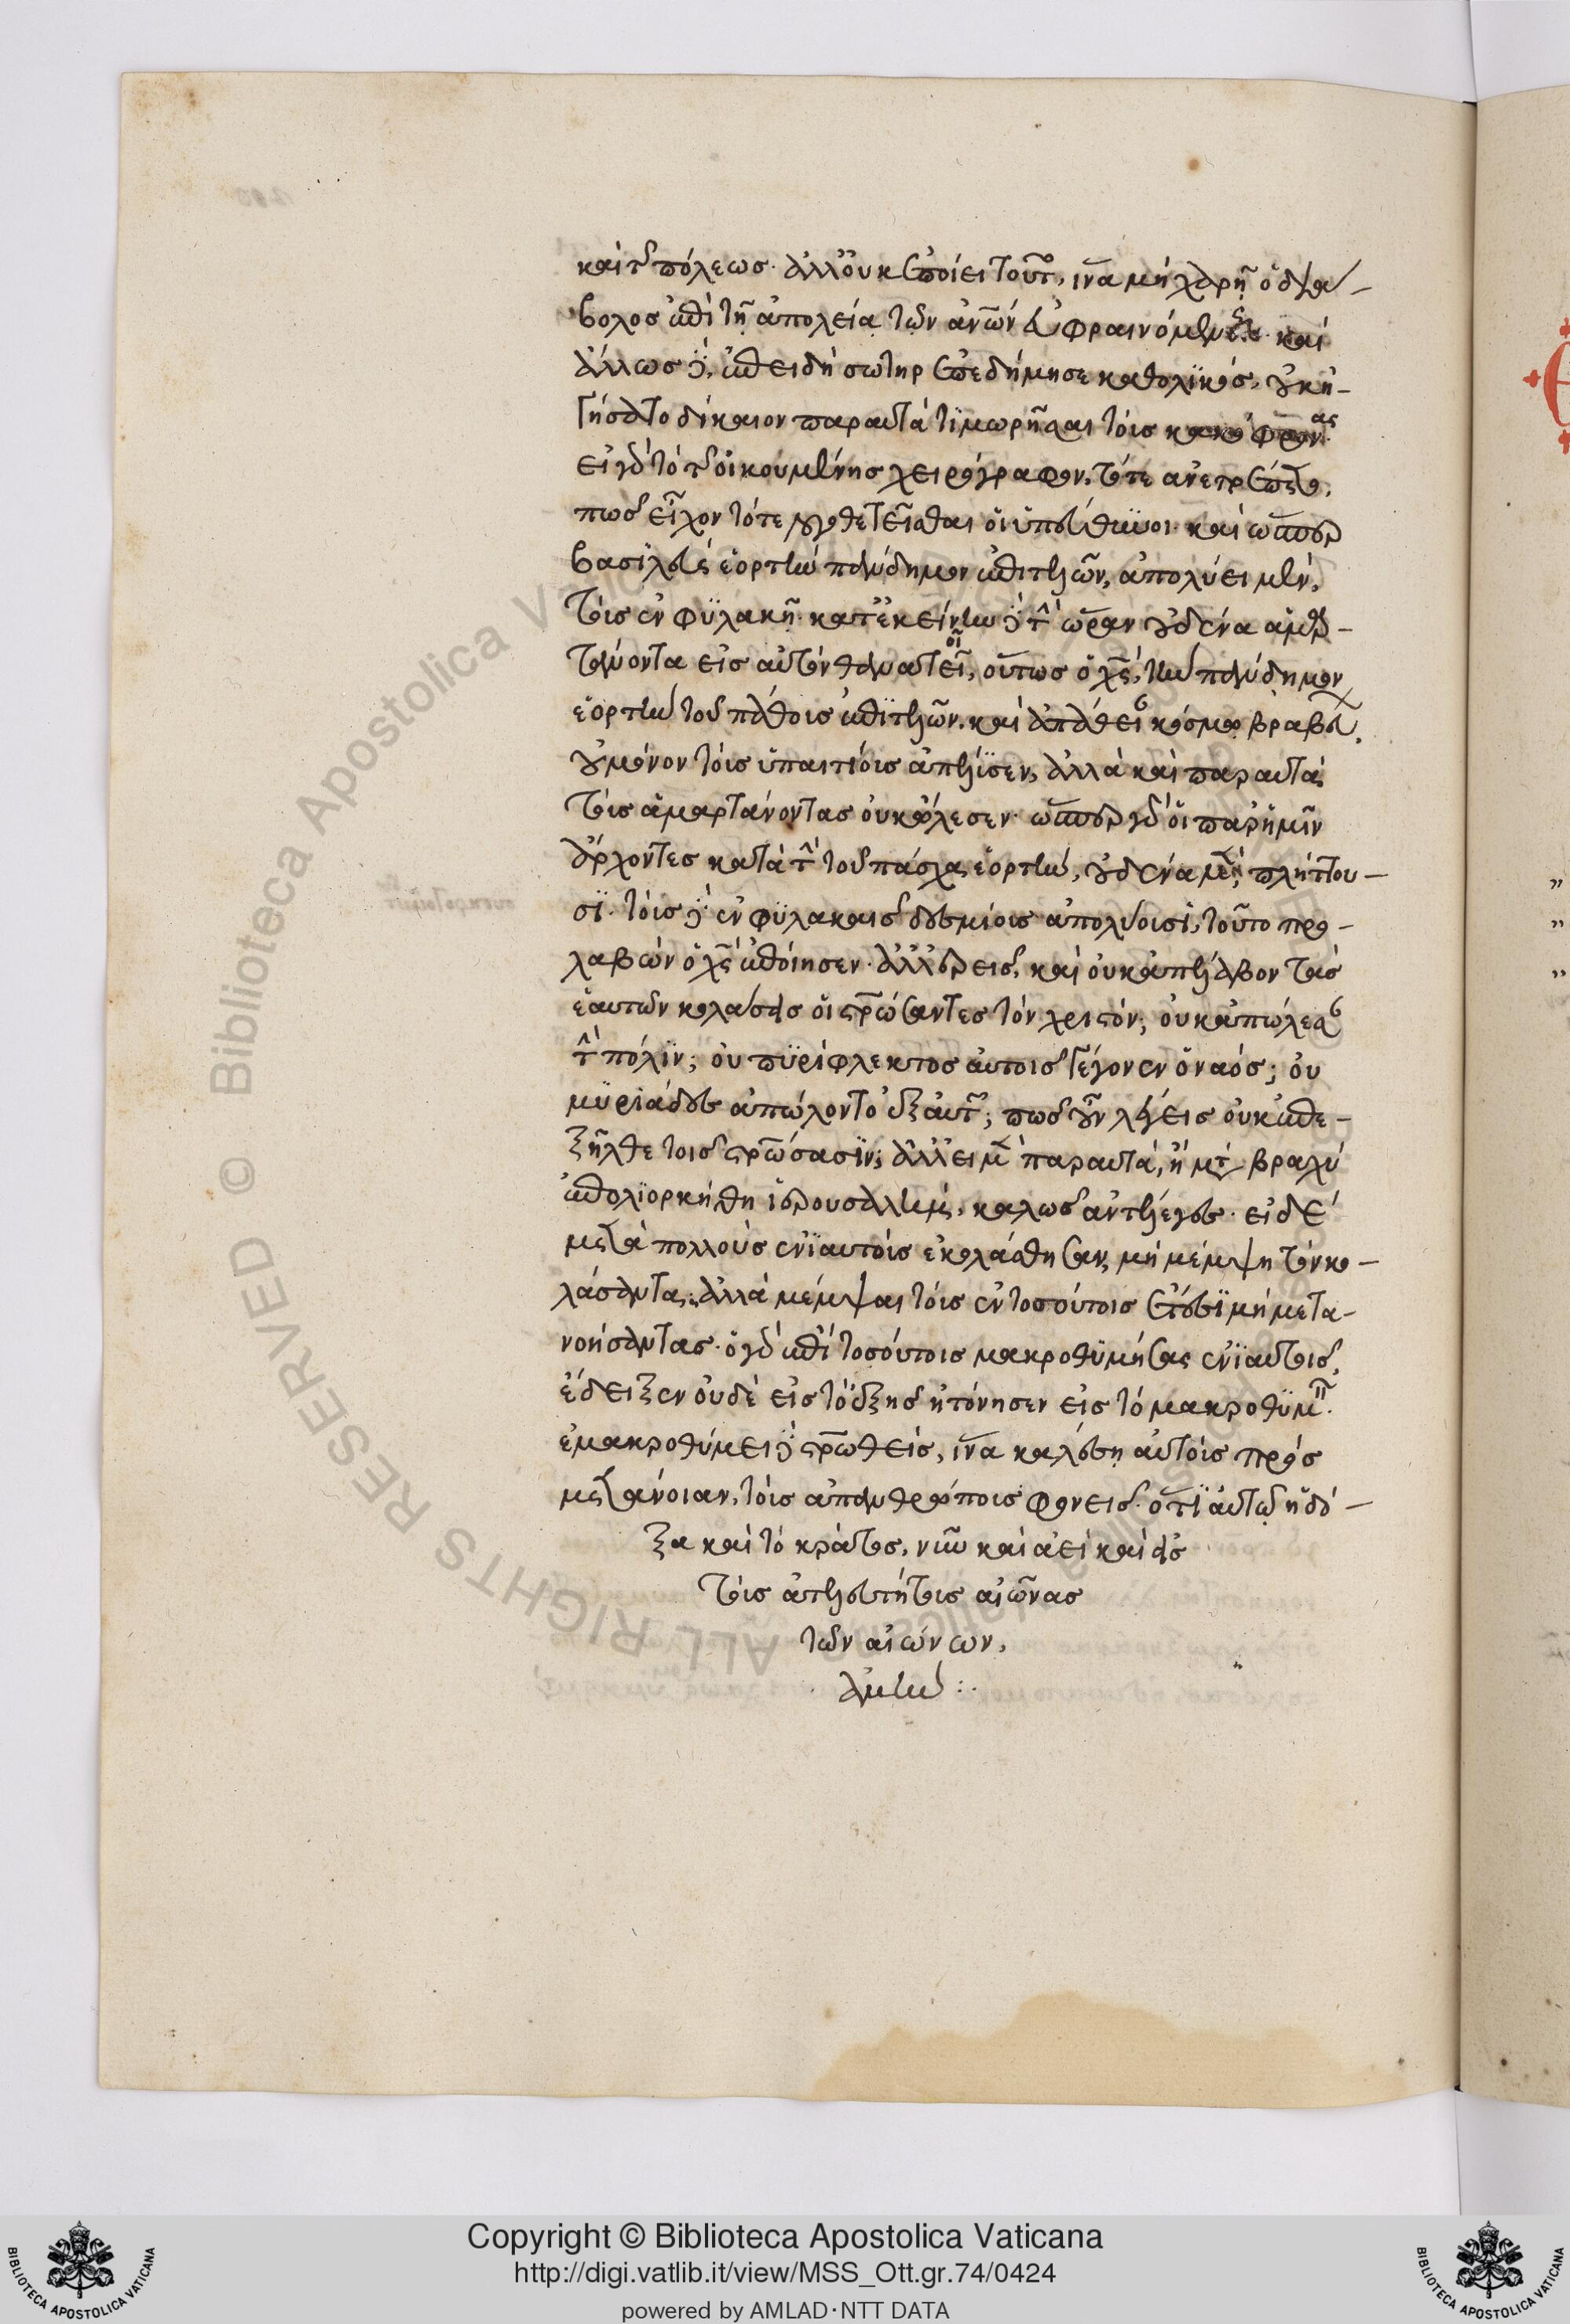 καὶ τ πόλεως. ἀλλ' οὐκ ἐποίει τοῦτο, ἵνα μὴ χαρῇ ὁ διά-
βολος ἐπὶ τῇ ἀπολεία τῶν ἀν̅ων εὐφραινόμενος. καὶ
ἄλλως δὲ, ἐπειδὴ σωτὴρ ἐπεδήμησε καθολϊκὸς, οὐκ ἡ-
γήσατο δίκαιον παραυτὰ τϊμωρῆσαι τοὺς
εἰ γὰρ τὸ τ οἰκουμένης χειρόγραφον, τότε ἀνέτρεπε,
πῶς εἶχον τότε οἱ ὑπεύθϋνοι. καὶ ὥσπερ
βασιλεὺς ἑορτὴν πάνδημον ἐπιτελῶν, ἀπολύει μὲν,
τοὺς ἐν φϋλακῇ. κατ' ἐκείνην δὲ τὴν ὥραν οὐδένα ἁμαρ-
τάνοντα εἰς αὐτὸν θανατοῖ, οὕτως ὁ χς, τὴν πάνδημον
ἑορτὴν τοῦ πάθους ἐπϊτελῶν. καὶ κόσμω
οὐ μόνον τοὺς ὑπαιτίους ἀπέλϋσεν, ἀλλὰ καὶ παραυτὰ
τοὺς ἁμαρτάνοντας οὐκ ὤλεσεν. ὥσπερ γὰρ οἱ παρ' ἡμῖν
ἄρχοντες κατὰ τὴν τοῦ πάσχα ἑορτὴν, οὐδένα μὲν πλήττου-
σϊ. τοὺς δὲ ἐν φϋλακαῖς δεσμίους ἀπολύουσϊ, τοῦτο προ-
λαβὼν ὁ χς ἐποίησεν. ἀλλ' ἐρεῖς, καὶ οὐκ ἀπέλαβον τὰς
ἑαυτῶν κολάσεις οἱ σρ̅ώσαντες τὸν χριστόν; οὐκ ἀπώλεσε
τὴν πόλϊν; οὐ πϋρίφλεκτος αὐτοῖς γέγονεν ὁ ναός; οὐ
μϋριάδες ἀπώλοντο ἐξ αὐτῶν; πῶς οὖν λέγεις οὐκ ἐπε-
ξῆλθε τοῖς σρ̅ώσασϊν; ἀλλ' εἰ μὲν παραυτὰ, ἢ μετὰ βραχὺ
ἐπολϊορκήθη ἱερουσαλὴμ, καλῶς ἀντέλεγες. εἰ δὲ
μετὰ πολλοὺς ἐνϊαυτοὺς ἐκολάσθησαν, μὴ μέμψη τὸν κο-
λάσαντα, ἀλλὰ μέμψαι τοὺς ἐν τοσούτοις ἔτεσϊ μὴ μετα-
νοήσαντας. ὁ γὰρ ἐπὶ τοσούτοις μακροθϋμήσας ἐνϊαυτοὺς,
ἔδειξεν οὐδὲ εἰς τὸ ἑξῆς ἠτόνησεν εἰς τὸ μακροθϋμῆσαι.
ἐμακροθύμει δὲ σρ̅ωθεὶς, ἵνα καλέση αὐτοὺς πρὸς
μετάνοιαν, τοὺς ἀπανθρώπους φονεῖς. ὅτϊ αὐτῷ ἡ δό-
ξα καὶ τὸ κράτος, νῦν καὶ ἀεὶ καὶ εἰς
τοὺς ἀτελευτήτους αἰῶνας
τῶν αἰώνων,
ἀμήν :.
© Biblioteca Apostolica Vaticana
ALL RIGHTS RESERVED
Copyright © Biblioteca Apostolica Vaticana
http://digi.vatlib.it/view/MSS_Ott.gr.74/0424
powered by AMLAD·NTT DATA
BIBLIOTECA APOSTOLICA VATICANA
BIBLIOTECA APOSTOLICA VATICANA